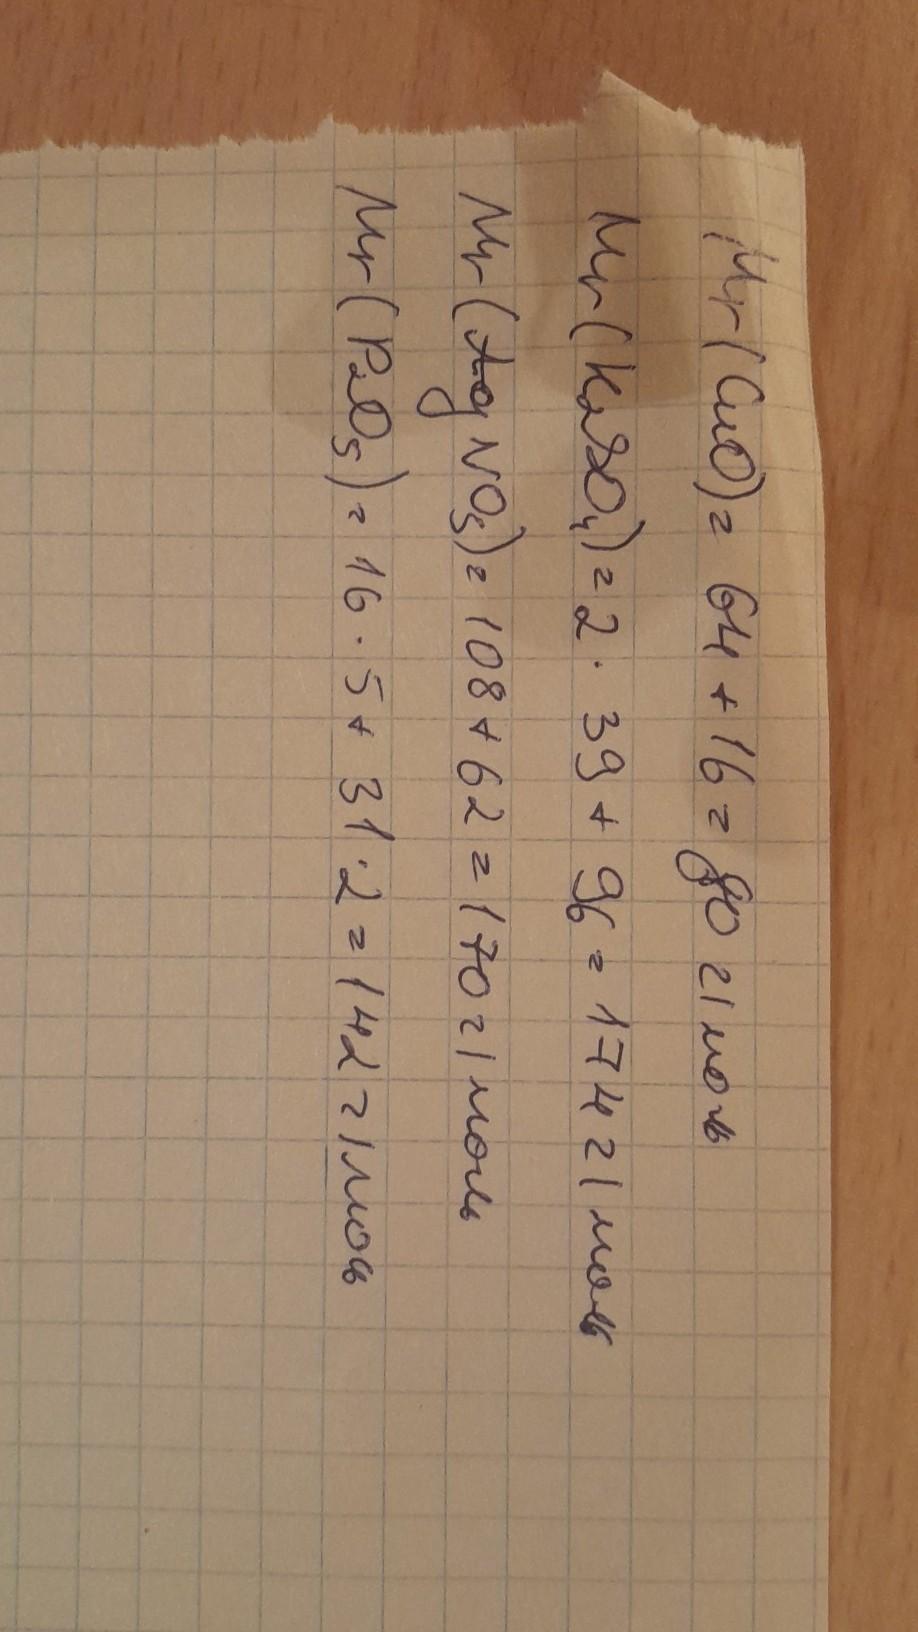 Mr(CuO) = 64 + 16 = 80 г/моль
Mr(K₂SO₄) = 2 · 39 + 96 = 174 г/моль
Mr(AgNO₃) = 108 + 62 = 170 г/моль
Mr(P₂O₅) = 16 · 5 + 31 · 2 = 142 г/моль